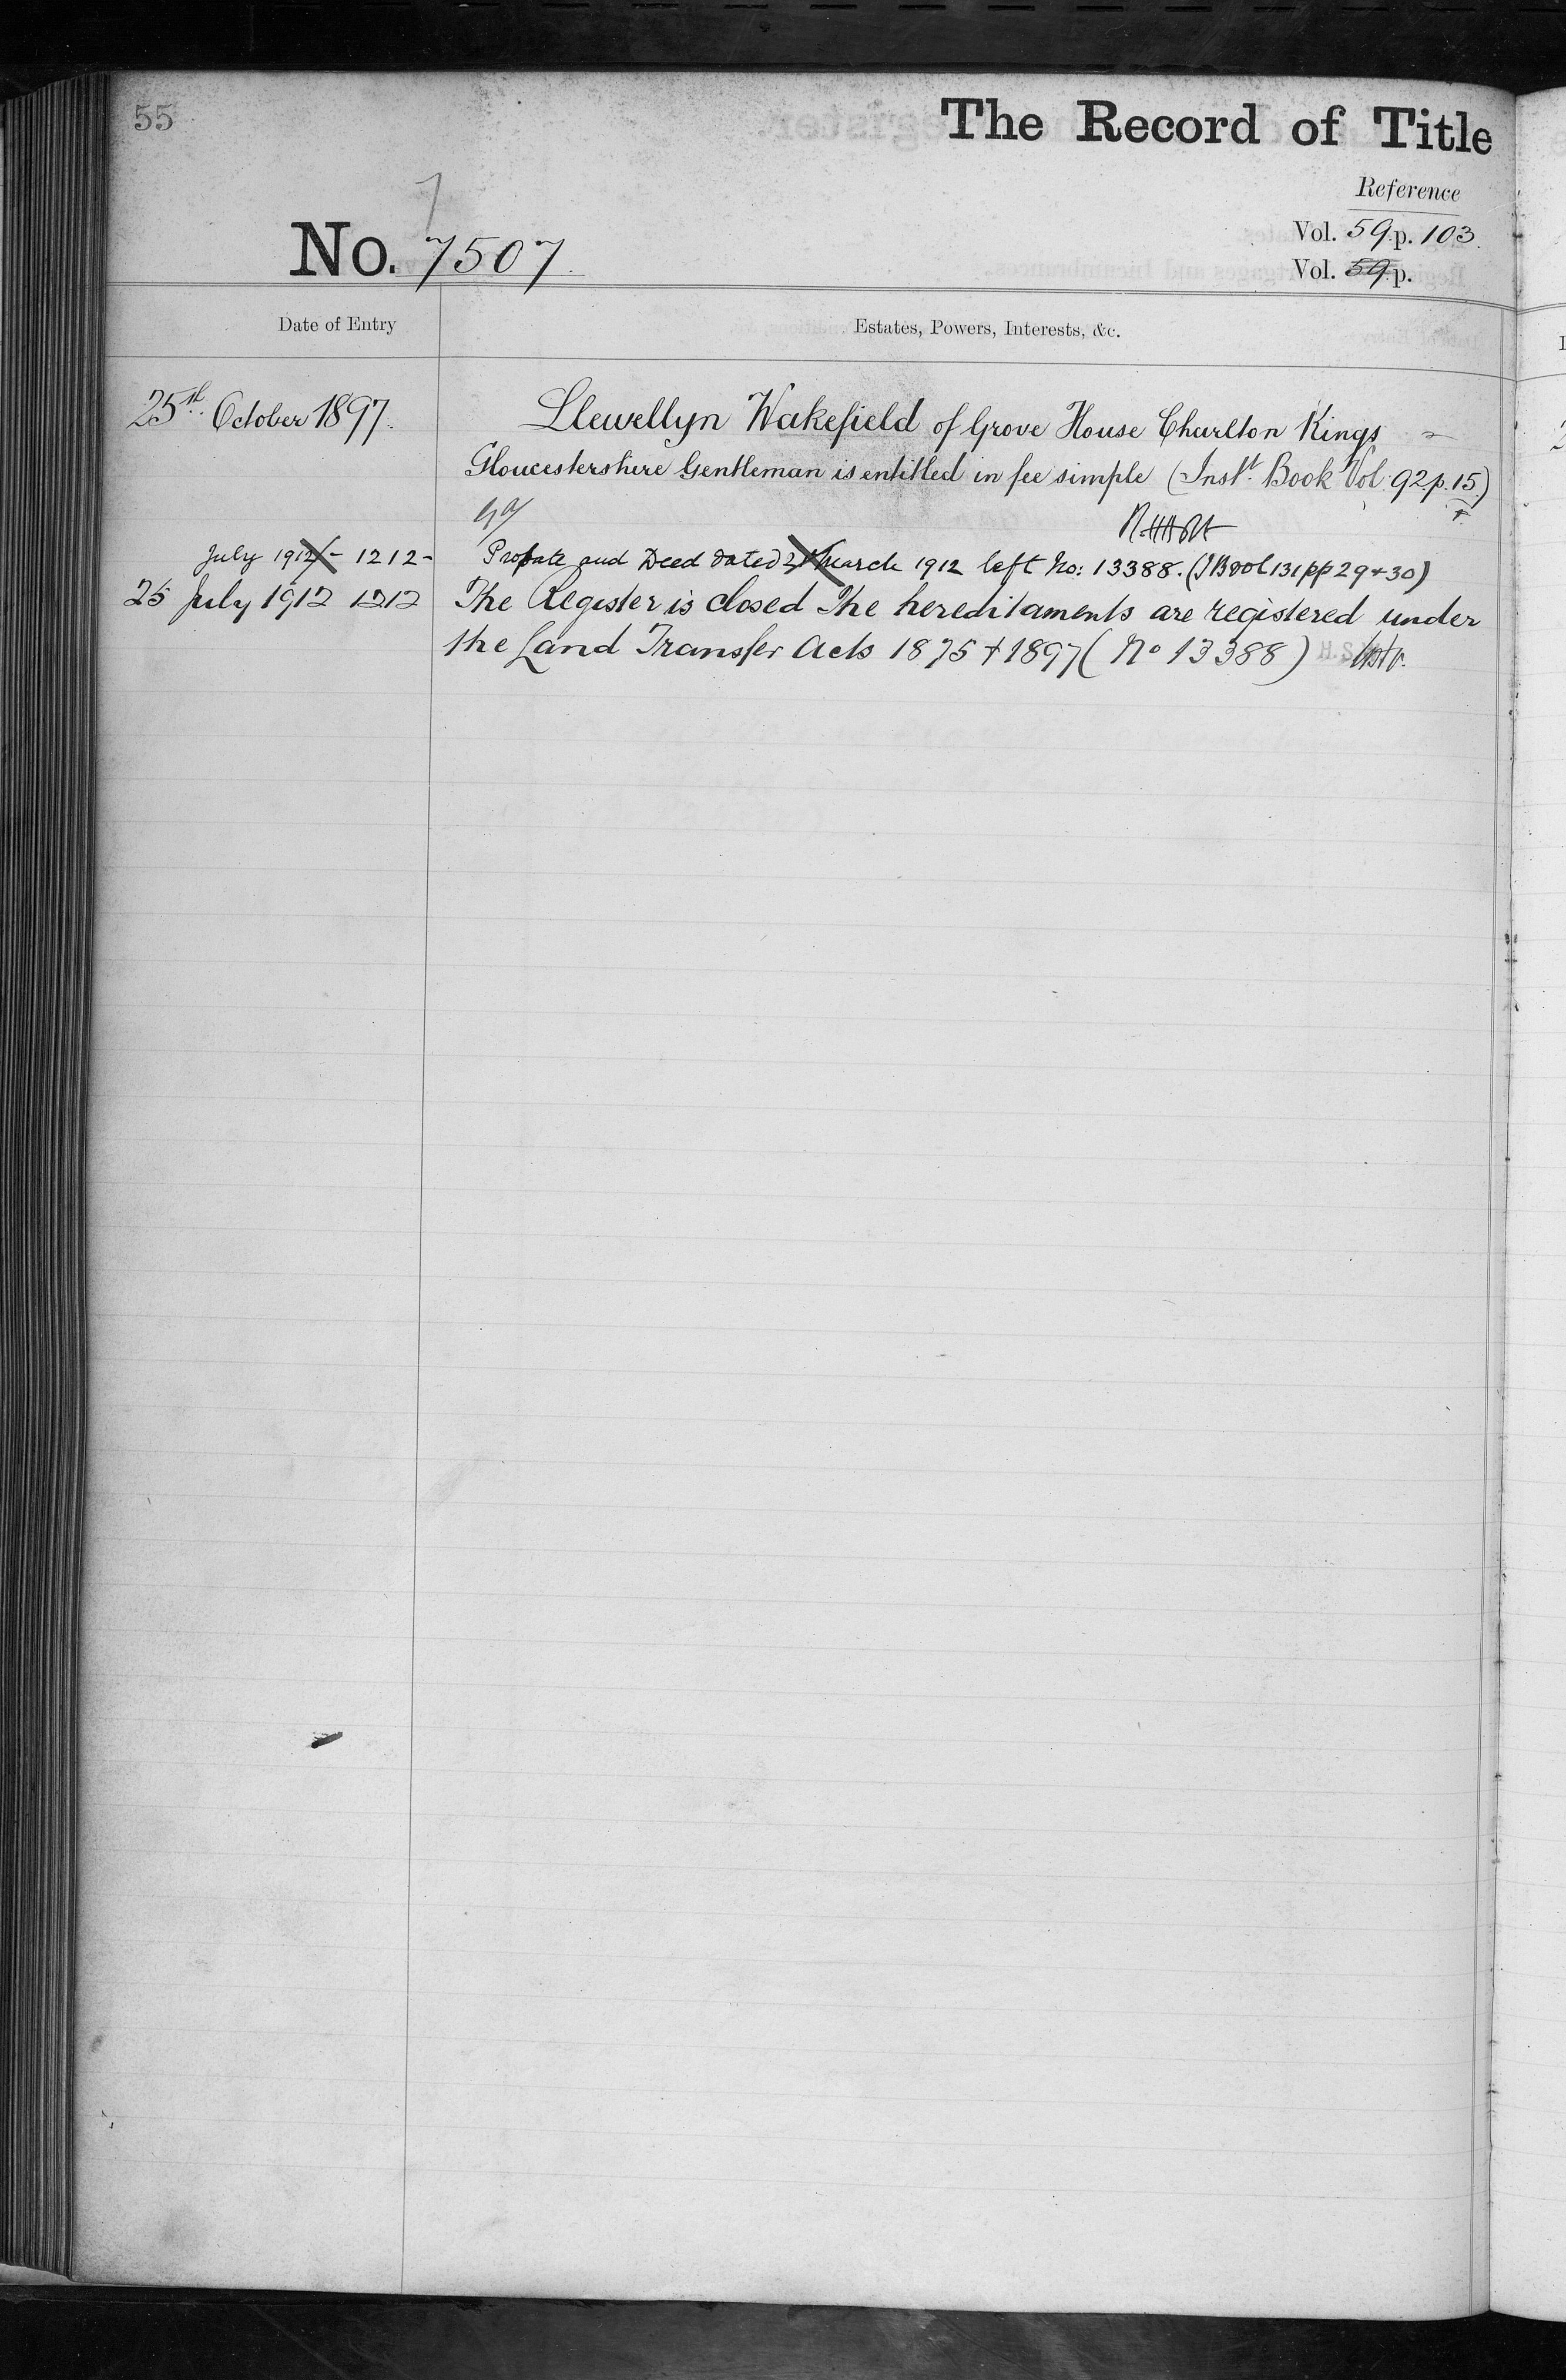 55
The Record of Title
Reference
7
Vol. 59. p. 103.
No. 7507.
Vol. 59. p.
Date of Entry
Estates, Powers, Interests, &c.
25th. October 1897.
Llewellyn Wakefield of Grove House Charlton Kings
Gloucestershire Gentleman is entitled in fee simple (Inst. Book Vol. 92. p. 15.)
July 1912 - 1212 -
Probate and Deed dated March 1912 left No: 13388. (IB vol 131 pp 29 + 30)
25 July 1912 1212
The Register is closed The hereditaments are registered under
the Land Transfer Acts 1875 + 1897 ( No 13388 )